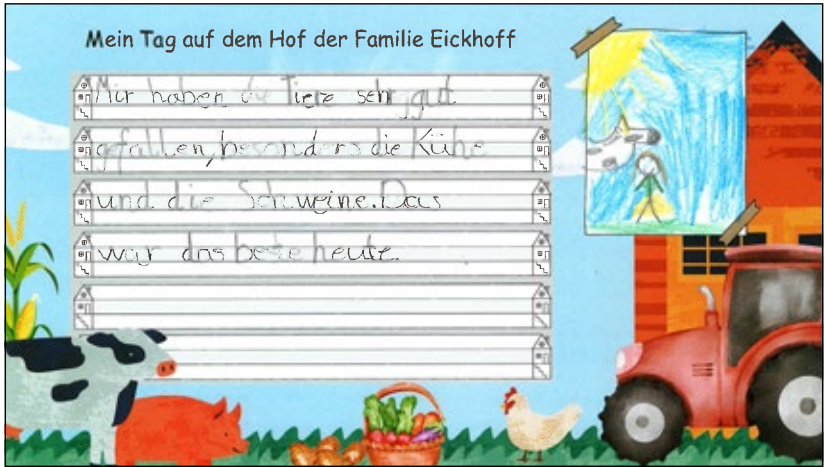 Mein Tag auf dem Hof der Familie Eickhoff
Mir haben die Tiere sehr gut
gefallen, besonders die Kühe
und die Schweine. Das
war das beste heute.